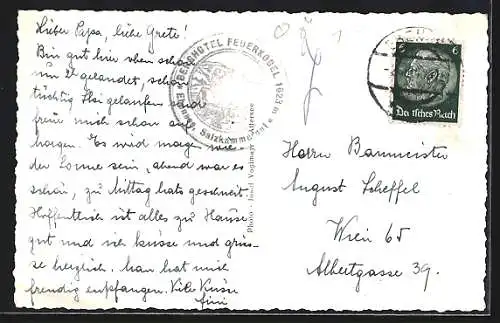 Lieber Papa, liebe Grete!
Bin gut hier oben schon
um 2h gelandet, schon
tüchtig Ski gelaufen und
freue mich schon auf
morgen. Es wird morgen wie
der Sonne sein, abend war es
schön, zu Mittag hats geschneit.
Hoffentlich ist alles zu Hause
gut und ich küsse und grüs-
se herzlich. Man hat mich
freudig empfangen. Viele Küsse
BERGHOTEL FEUERKOGEL 1623 m
Ebensee, Salzkammergut
Photo: Josef Voglmayr
6
Deutsches Reich
Herrn Baumeister
August Scheffel
Wien 65
Albertgasse 39.